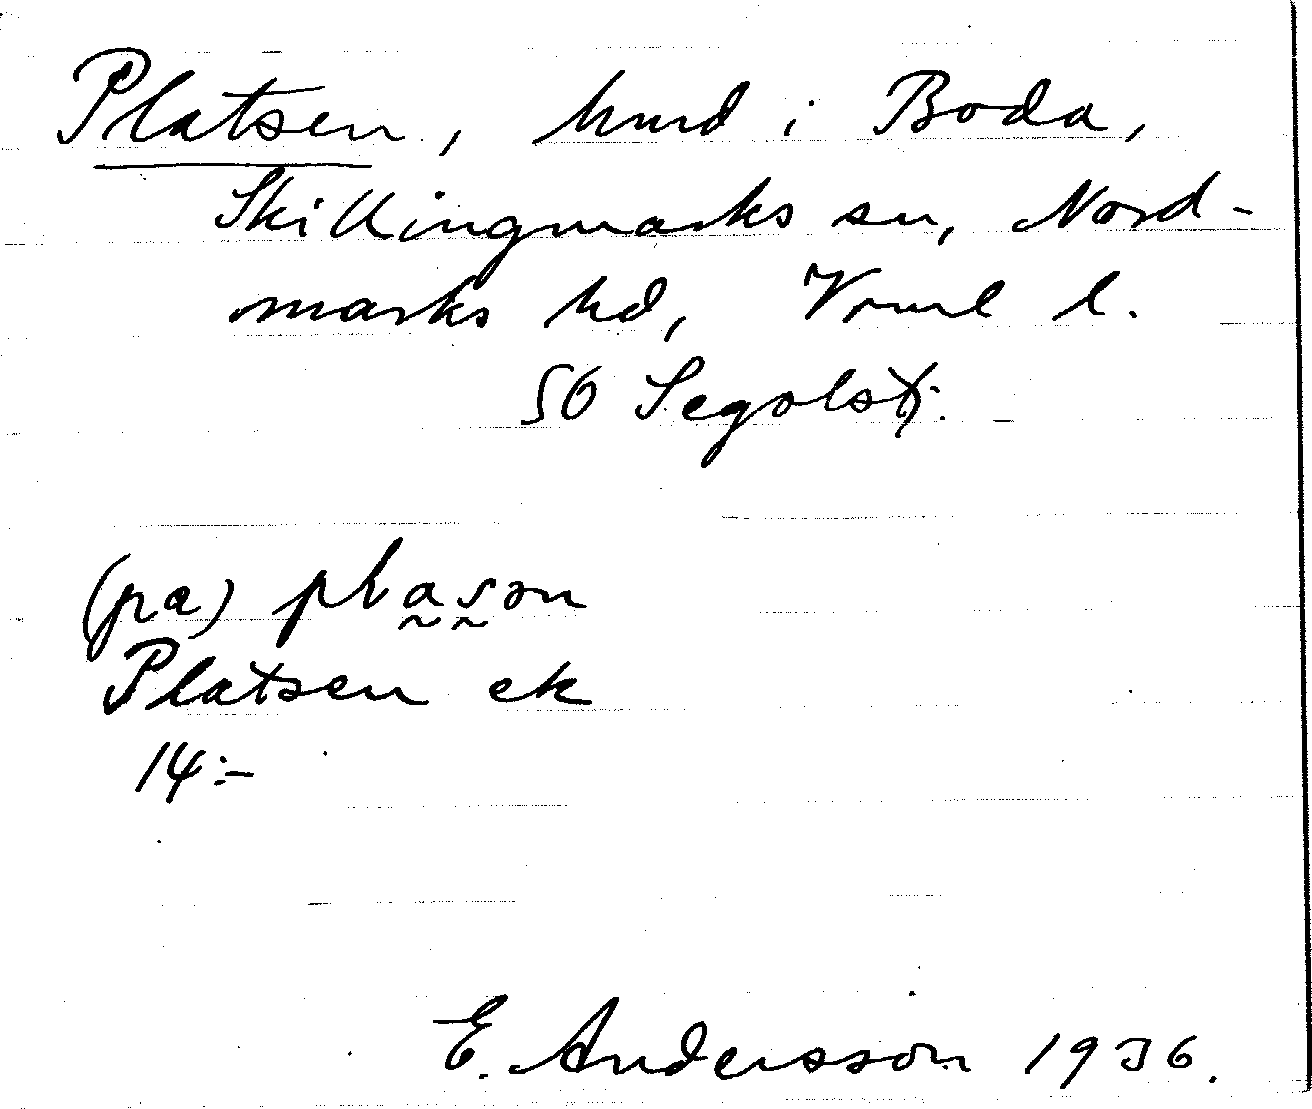 Platsen, hmd i Boda,
Skillingmarks sn, Nord-
marks hd, Vrml l.
SO Segolstj.
(pa) plasən
Platsen ek
14:-
E. Andersson 1936.